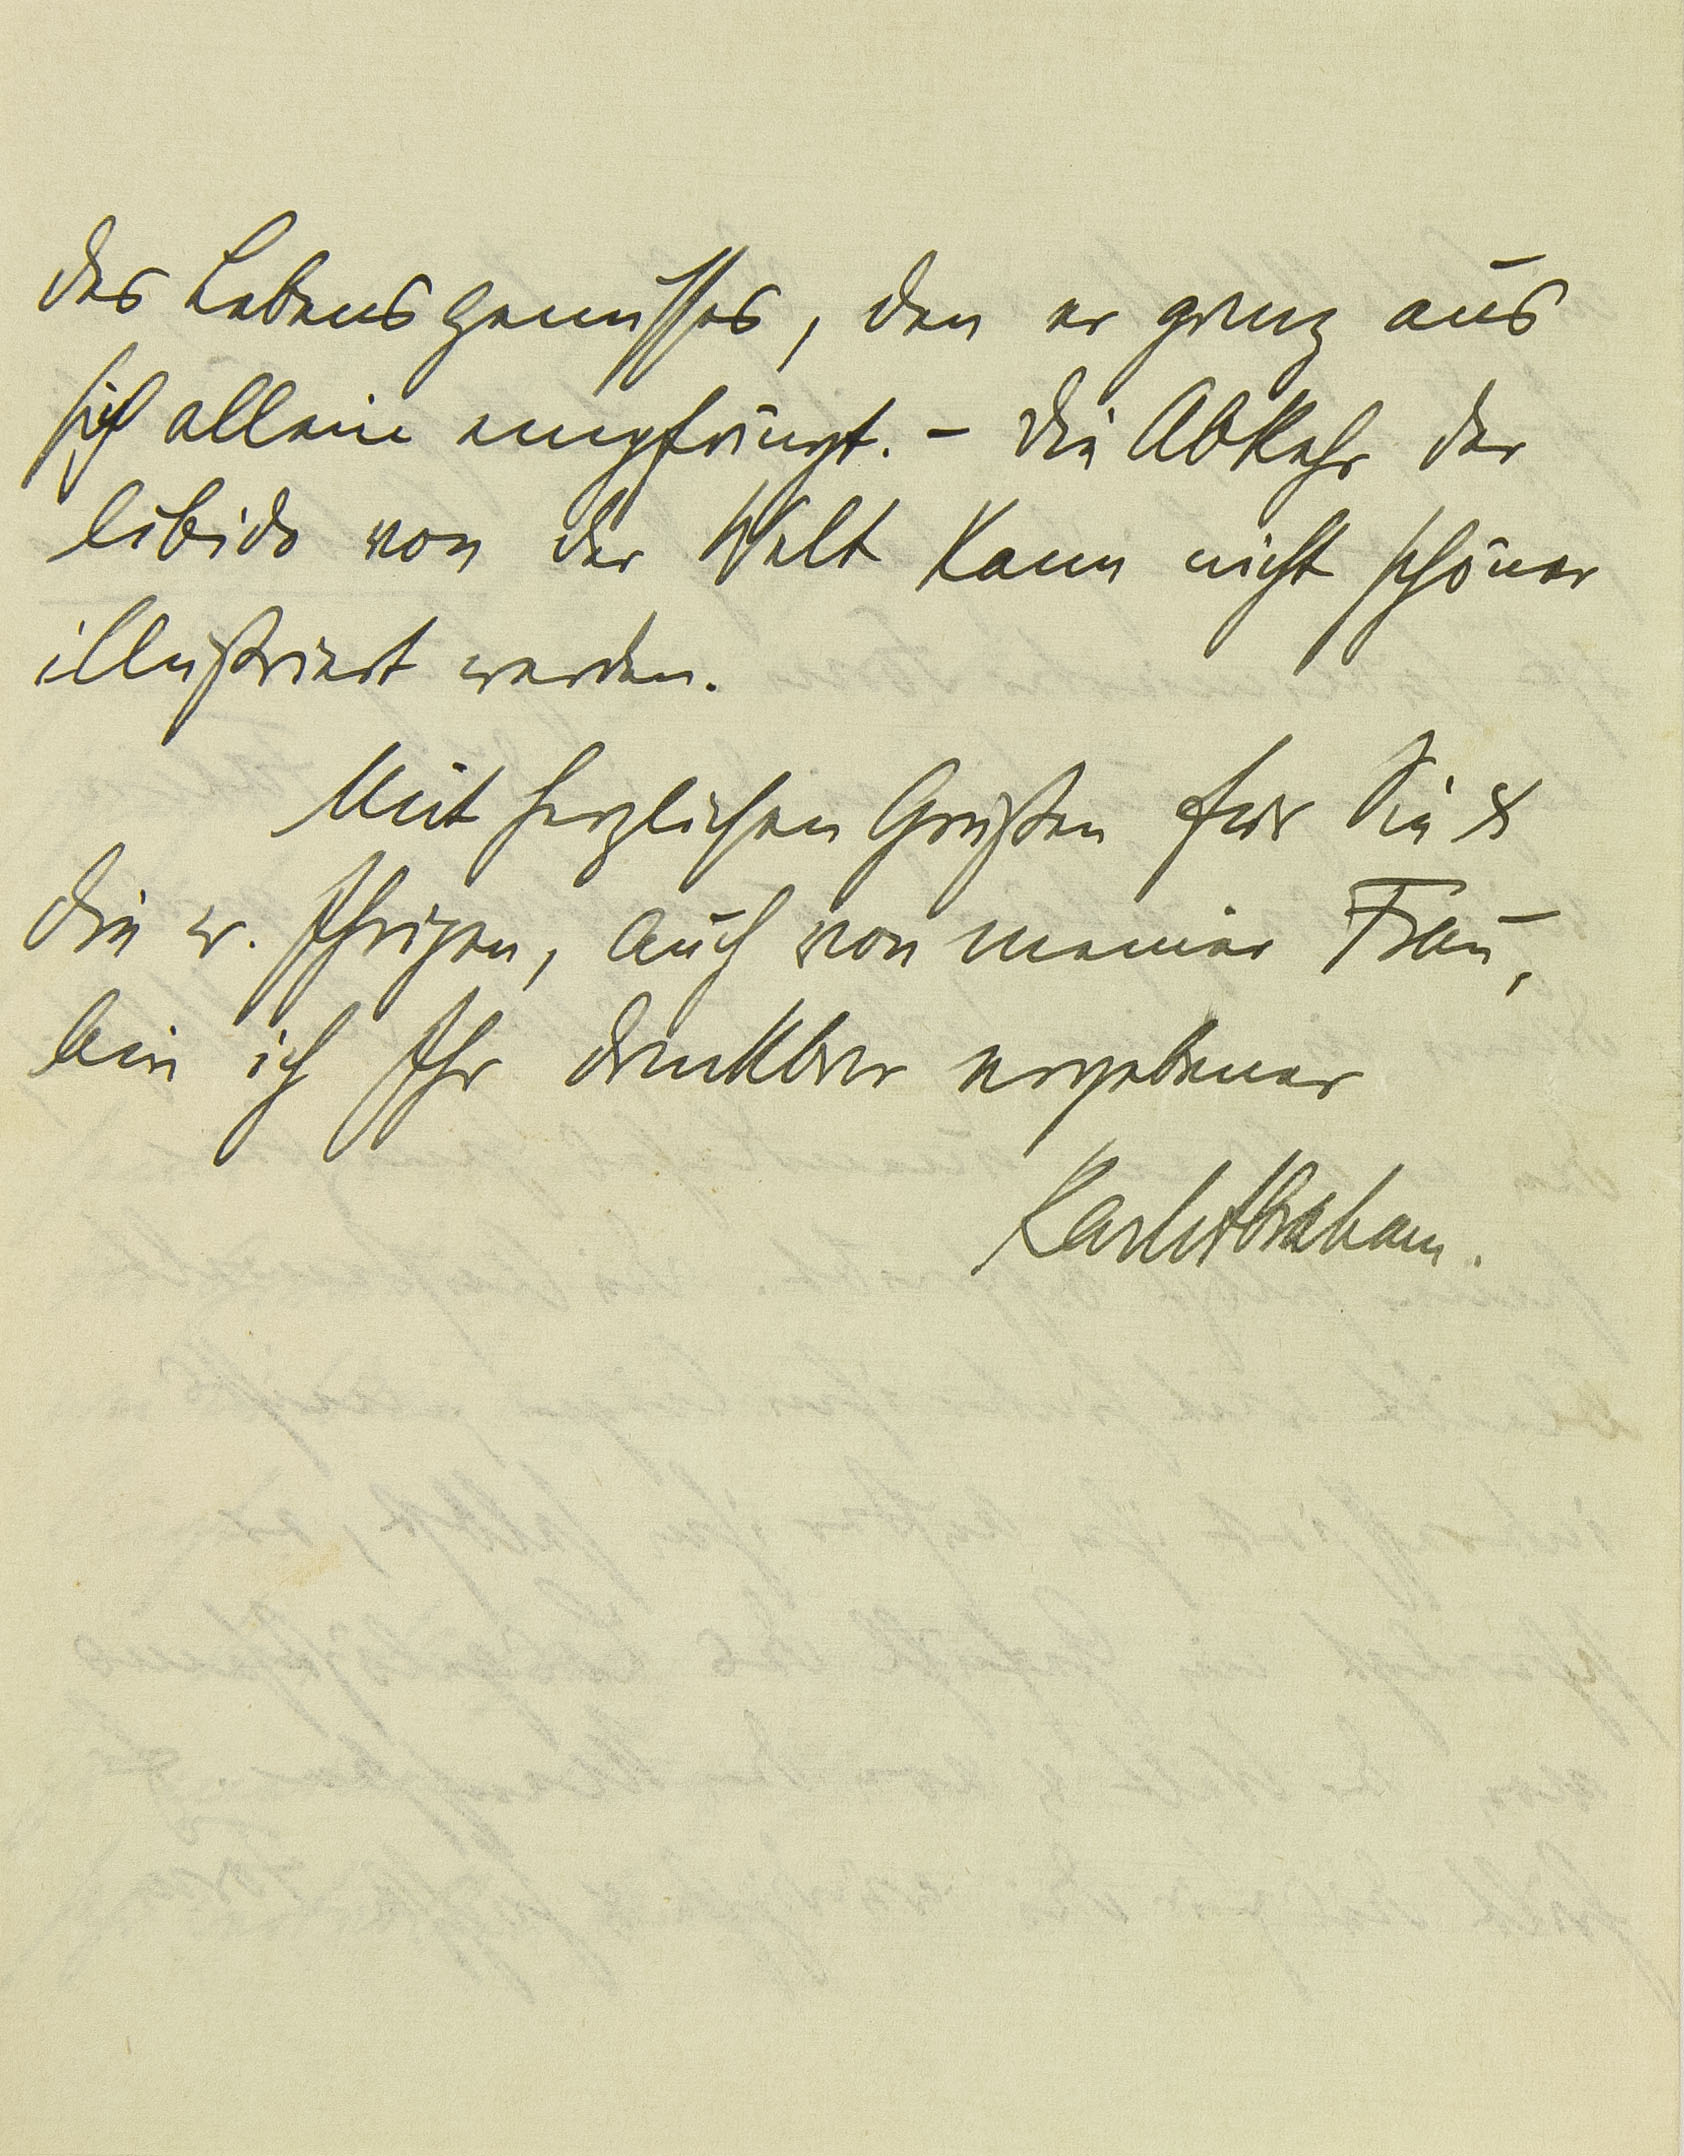 des Lebensgenusses, den er ganz aus
sich allein empfängt. – Die Abkehr der
Libido von der Welt kann nicht schöner
illustriert werden.
Mit herzlichen Grüßen für Sie &
die w. Ihrigen, auch von meiner Frau,
bin ich Ihr dankbar ergebener
Karl Abraham.